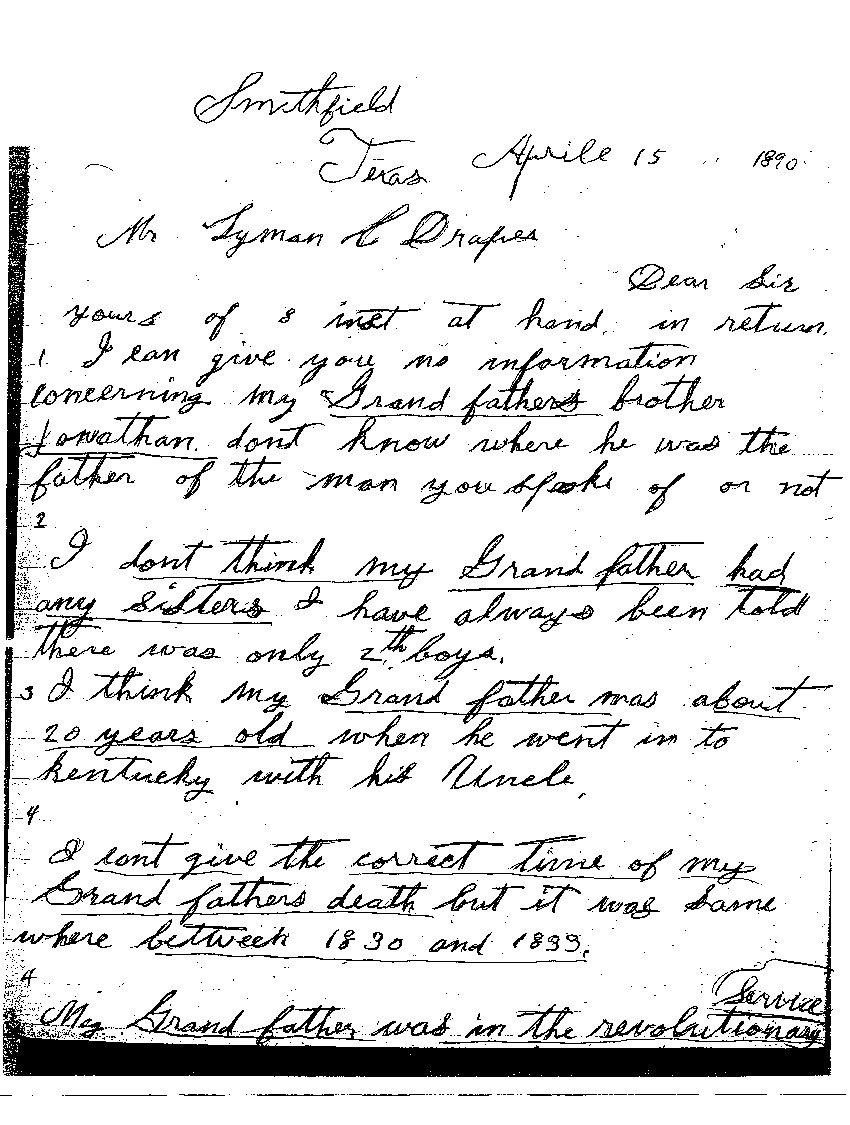 Smithfield
Texas Aprile 15 1890
Mr Lyman C Draper
Dear Sir
yours of 8 inst at hand. in return
1 I can give you no information
concerning my Grand fathers brother
Jonathan. dont know where he was the
father of the man you spoke of or not
2
I dont think my Grand father had
any sisters I have always been told
there was only 2th boys.
3 I think my Grand father was about
20 years old when he went in to
kentucky with his Uncle.
4
I cant give the correct time of my
Grand fathers death but it was some
where between 1830 and 1833.
4
Service
My Grand father was in the revolutionary